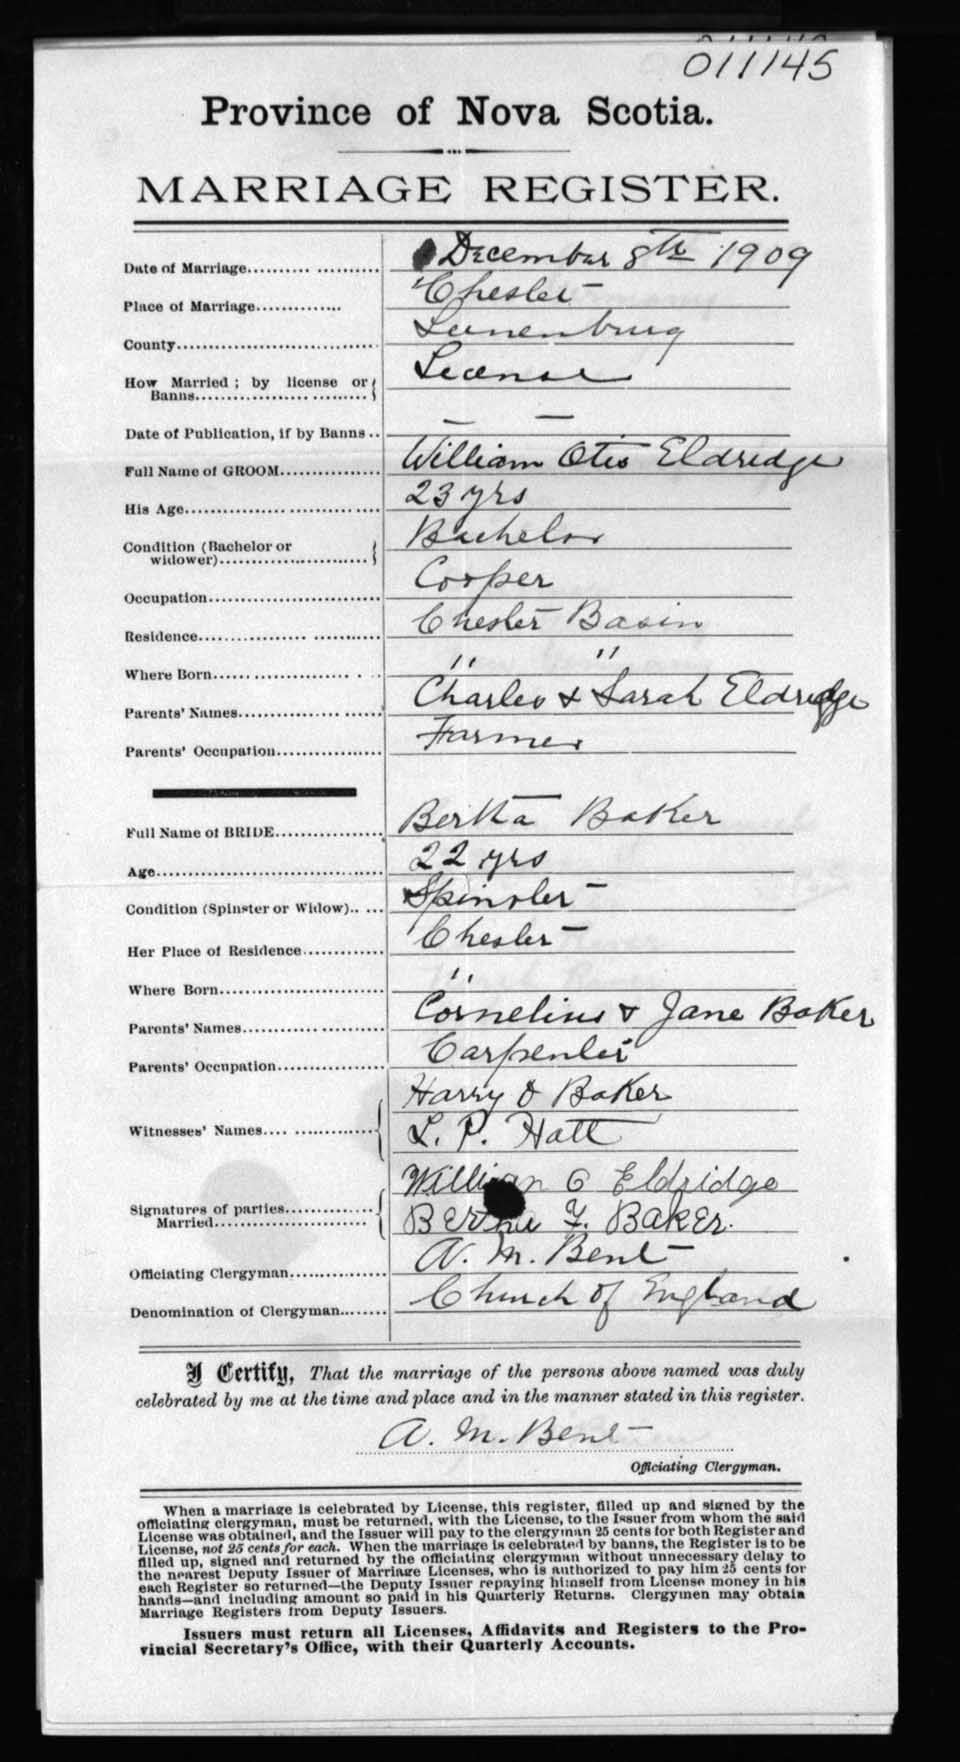 011145
Province of Nova Scotia.
MARRIAGE REGISTER.
Date of Marriage.......... December 8th 1909
Place of Marriage............. Chester
County............................... Lunenburg
How Married ; by license or
Banns........................... License
Date of Publication, if by Banns .. — —
Full Name of GROOM............... William Otis Eldredge
His Age............................. 23 yrs
Condition (Bachelor or
widower)........................ Bachelor
Occupation........................... Cooper
Residence........................... Chester Basin
Where Born........................ " "
Parents' Names..................... Charles & Sarah Eldredge
Parents' Occupation................ Farmer
Full Name of BRIDE................ Bertha Baker
Age.................................. 22 yrs
Condition (Spinster or Widow)..... Spinster
Her Place of Residence............ Chester
Where Born......................... "
Parents' Names..................... Cornelius & Jane Baker
Parents' Occupation................ Carpenter
Harry & Baker
Witnesses' Names.... ............. L. P. Hatt
William O Eldridge
Signatures of parties.............
Married....................... Bertha F. BAKER.
Officiating Clergyman............... A. M. Bent
Denomination of Clergyman........ Church of England
I Certify, That the marriage of the persons above named was duly
celebrated by me at the time and place and in the manner stated in this register.
A. M. Bent
Officiating Clergyman.
When a marriage is celebrated by License, this register, filled up and signed by the
officiating clergyman, must be returned, with the License, to the Issuer from whom the said
License was obtained, and the Issuer will pay to the clergyman 25 cents for both Register and
License, not 25 cents for each. When the marriage is celebrated by banns, the Register is to be
filled up, signed and returned by the officiating clergyman without unnecessary delay to
the nearest Deputy Issuer of Marriage Licenses, who is authorized to pay him 25 cents for
each Register so returned—the Deputy Issuer repaying himself from License money in his
hands—and including amount so paid in his Quarterly Returns. Clergymen may obtain
Marriage Registers from Deputy Issuers.
Issuers must return all Licenses, Affidavits and Registers to the Pro-
vincial Secretary's Office, with their Quarterly Accounts.